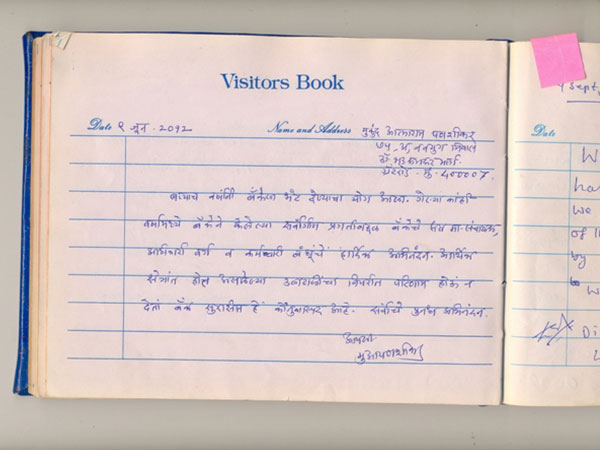 Visitors Book
Date ९ जून - २०१२ Name and Address मुकुंद आत्माराम
७५ - अ, नवयुग निवास
ग्रँटरोड - मुं - ४००००७.
बऱ्याच वर्षांनी बँकेला भेट देण्याचा योग आला. गेल्या कांही
वर्षामध्ये बँकेने केलेल्या सर्वांगीण प्रगतीबद्दल बँकेचे सर्व मा. संचालक,
अधिकारी वर्ग व कर्मचारी बंधूंचे हार्दिक अभिनंदन. आर्थिक
क्षेत्रांत होत असलेल्या विपरीत परिणाम होऊ न
देतां बँक सुरक्षित हे कौतुकास्पद आहे. सर्वांचे पुनश्च अभिनंदन.
आपला
Sept.
Date
W
ha
we
of
by
W
Di